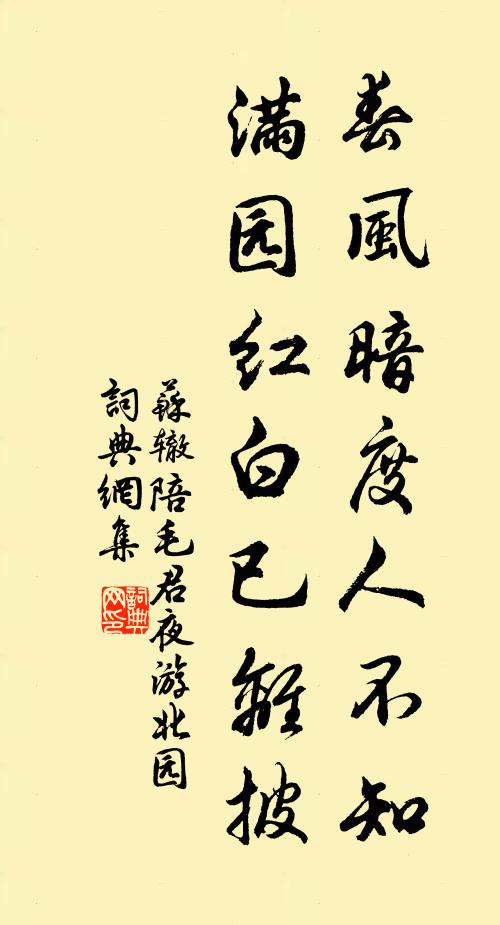 春風暗度人不知
滿园红白已離披
蘇辙陪毛君夜游北园
詞典網集
詞典网印